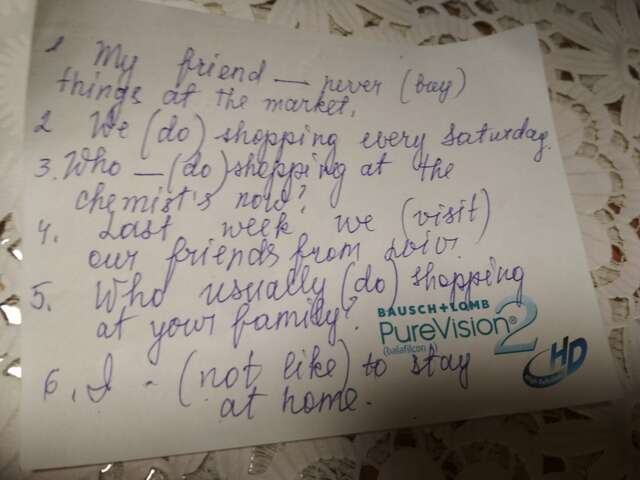 1 My friend — never (buy)
things at the market.
2 We (do) shopping every Saturday.
3. Who — (do) shopping at the
chemist's now?
4. Last week we (visit)
our friends from Lviv.
5. Who usually (do) shopping
at your family?
BAUSCH+LOMB
PureVision®2
(balafilcon A)
HD
6. I - (not like) to stay
at home.